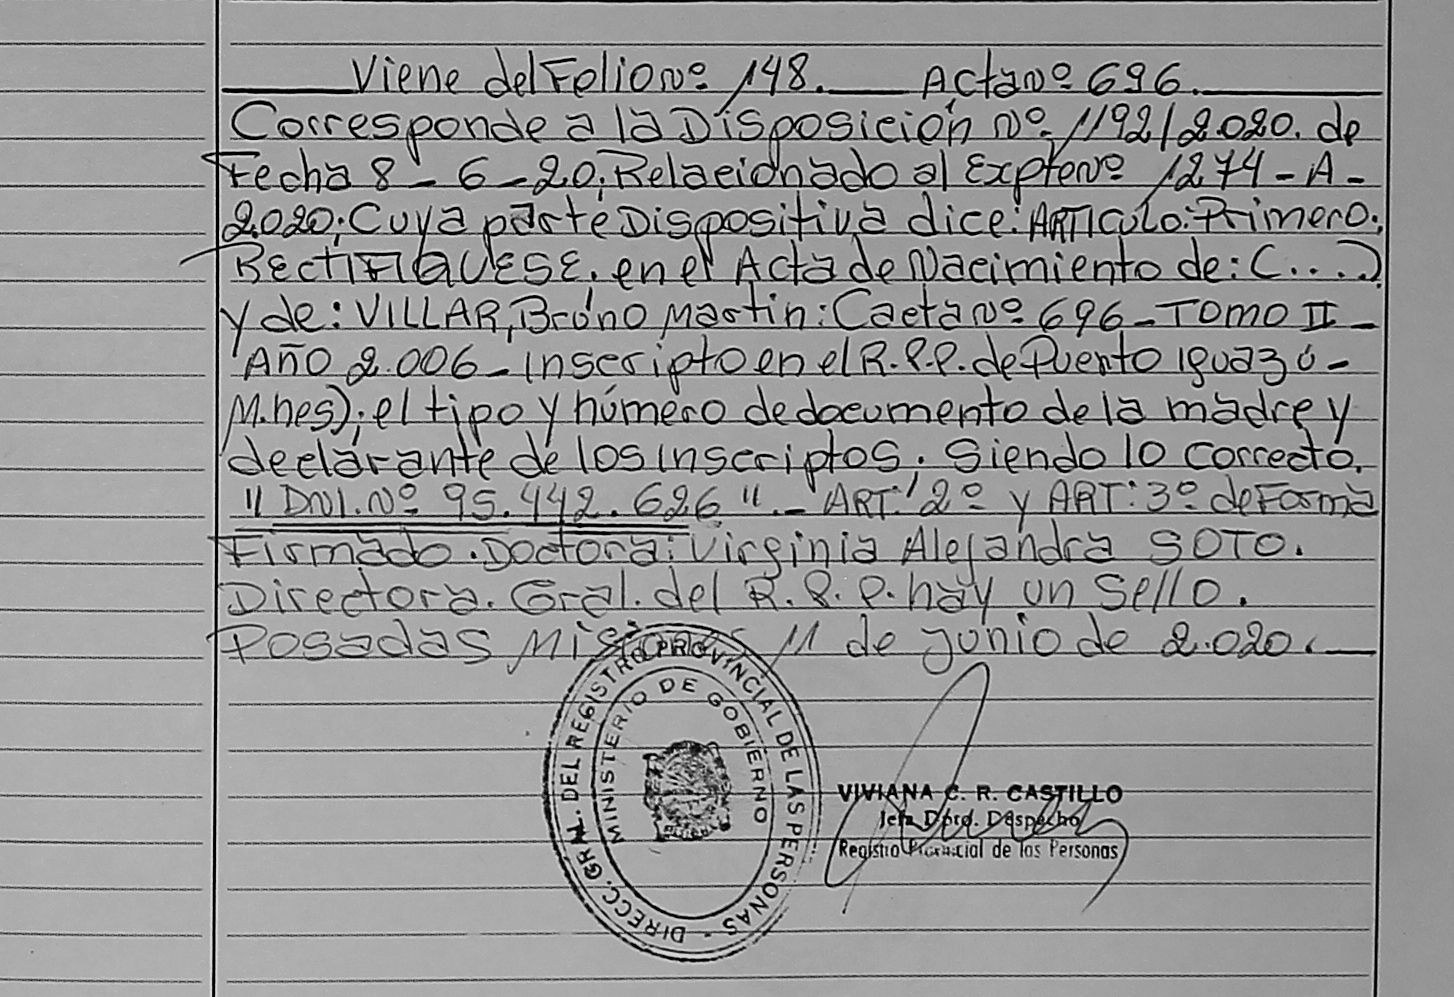 Viene del Folio Nº 148. Acta Nº 696.
Corresponde a la Disposición Nº 1192/2.020. de
Fecha 8-6-20; Relacionado al Expte Nº 1274-A-
2.020; Cuya parte Dispositiva dice: ARTICULO: Primero:
RECTIFIQUESE. en el Acta de Nacimiento de: C....)
y de: VILLAR, Bruno Martin: (acta Nº 696 - TOMO II -
AÑO 2.006 - Inscripto en el R.P.P. de Puerto Iguazú -
M.nes); el tipo y número de documento de la madre y
declarante de los inscriptos. Siendo lo correcto.
"DNI. Nº 95.442.626". - ART: 2º y ART: 3º de Forma
Firmado. Doctora: Virginia Alejandra SOTO.
Directora. Gral. del R.P.P. hay un Sello.
Posadas Misiones 11 de junio de 2.020.
DIRECC. GRAL. DEL REGISTRO PROVINCIAL DE LAS PERSONAS -
MINISTERIO DE GOBIERNO
VIVIANA C. R. CASTILLO
Jefa Dpto. Despacho
Registro Provincial de las Personas